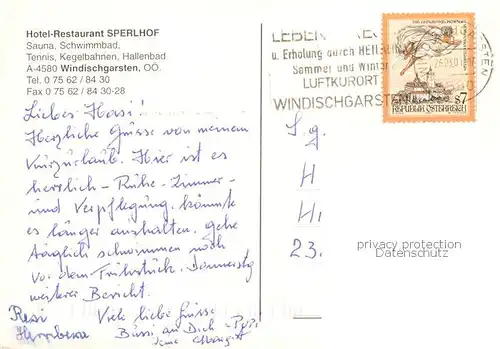 Hotel-Restaurant SPERLHOF
Sauna, Schwimmbad,
Tennis, Kegelbahnen, Hallenbad
A-4580 Windischgarsten, OÖ.
Tel. 0 75 62 / 84 30
Fax 0 75 62 / 84 30-28
Liebes Hasi!
Herzliche Grüsse von meinem
Kurzurlaub. Hier ist es
herrlich - Ruhe - Zimmer -
und Verpflegung, könnte
es länger aushalten, gehe
täglich schwimmen noch
vor dem Frühstück. Donnerstg
weiterer Bericht.
Viele liebe Grüsse
Resi
Bussi an Dich - Pipsi
LEBEN
u. Erholung durch HEILKLIMA
Sommer und Winter
LUFTKURORT
WINDISCHGARSTEN
s7
REPUBLIK ÖSTERREICH
S. g.
H
Hi
23.
privacy protection
Datenschutz